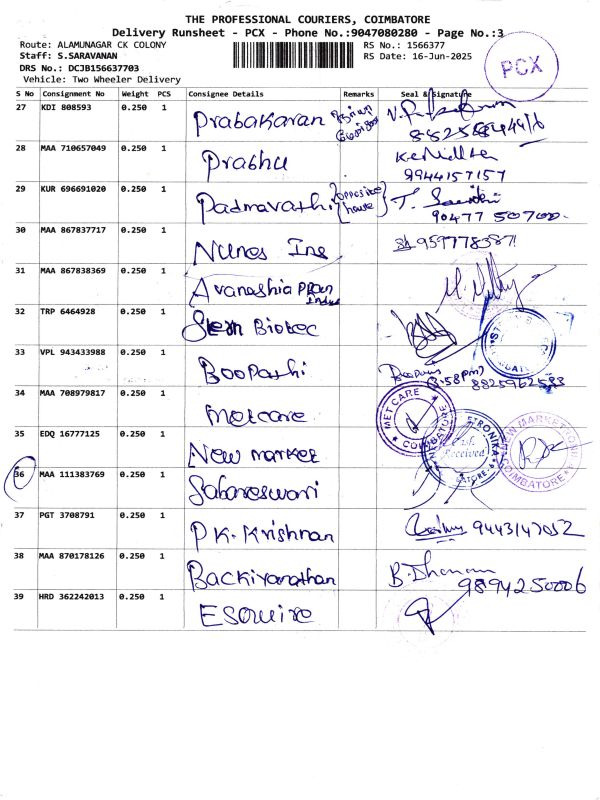 THE PROFESSIONAL COURIERS, COIMBATORE
Delivery Runsheet - PCX - Phone No.:9047080280 - Page No.:3
Route: ALAMUNAGAR CK COLONY
RS No.: 1566377
Staff: S.SARAVANAN
RS Date: 16-Jun-2025
DRS No.: DCJB156637703
Vehicle: Two Wheeler Delivery
PCX
S No Consignment No Weight PCS Consignee Details Remarks Seal & Signature
27 KDI 808593 0.250 1 Prabakaran
28 MAA 710657049 0.250 1 Prabhu
9944157157
29 KUR 696691020 0.250 1 Padmavathi (opposite house)
90477 50700
30 MAA 867837717 0.250 1 Nunes Ine
31 MAA 867838369 0.250 1
32 TRP 6464928 0.250 1 Stem Biotec
33 VPL 943433988 0.250 1 Boopathi
8825962583
34 MAA 708979817 0.250 1 Metcare
MET CARE
35 EDQ 16777125 0.250 1 New market
Received
COIMBATORE
36 MAA 111383769 0.250 1 Sabareswari
37 PGT 3708791 0.250 1 P.K. Krishnan
9443147052
38 MAA 870178126 0.250 1 Backiyanathan
9894250006
39 HRD 362242013 0.250 1 Esquire